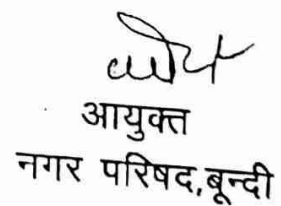 आयुक्त
नगर परिषद,बून्दी